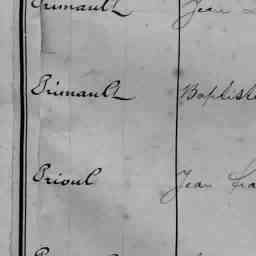 Primault Jean
Primault Baptiste
Prioul Jean